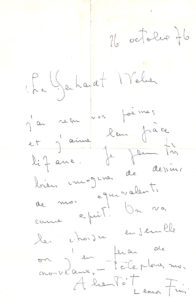 16 octobre 76
j'ai reçu vos poèmes
et j'aime leur grâce
Je peux très
bien imaginer de dessins
de mes équivalents
comme esprit. On va
les choisir ensemble
ou j'en ferai de
nouveaux, — téléphonez moi
A bientôt
Leonor Fini